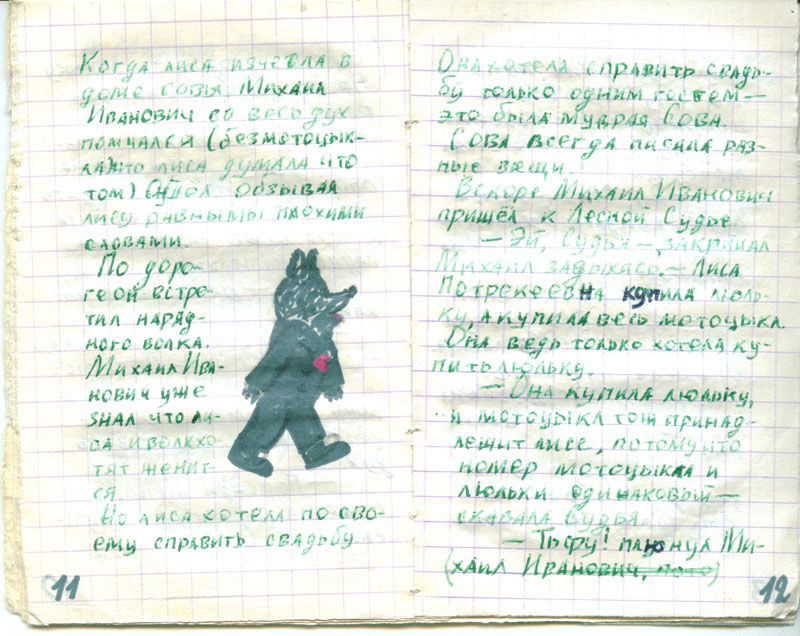 Когда лиса изчезла в
доме совы Михаил
Иванович со весь дух
помчался (без мотоцык-
ла) что лиса думала что
том) Он шёл обзывая
лису разнымы плохими
словами.
По доро-
ге он встре-
тил наряд-
ного волка.
Михаил Ива-
нович уже
знал что ли-
са и волк хо-
тят женит-
ся.
Но лиса хотела по сво-
ему справить свадьбу
11
Она хотела справить свадь-
бу только одним гостем —
это была мудрая Сова.
Сова всегда писала раз-
ные вещи.
Вскоре Михаил Иванович
пришёл к Лесной Судье
— Эй, Судья —, закричал
Михаил задыхясь. — Лиса
Потрекеевна купила люль-
ку, а купила весь мотоцыкл.
Она ведь только хотела ку-
пить люльку.
— Она купила люльку,
и мотоцыкл тож принад-
лещит лисе, потому что
номер мотоцыкла и
люльки одинаковый —
сказала Судья.
— Тьфу! плюнул Ми-
(хаил Иванович, пото)
12